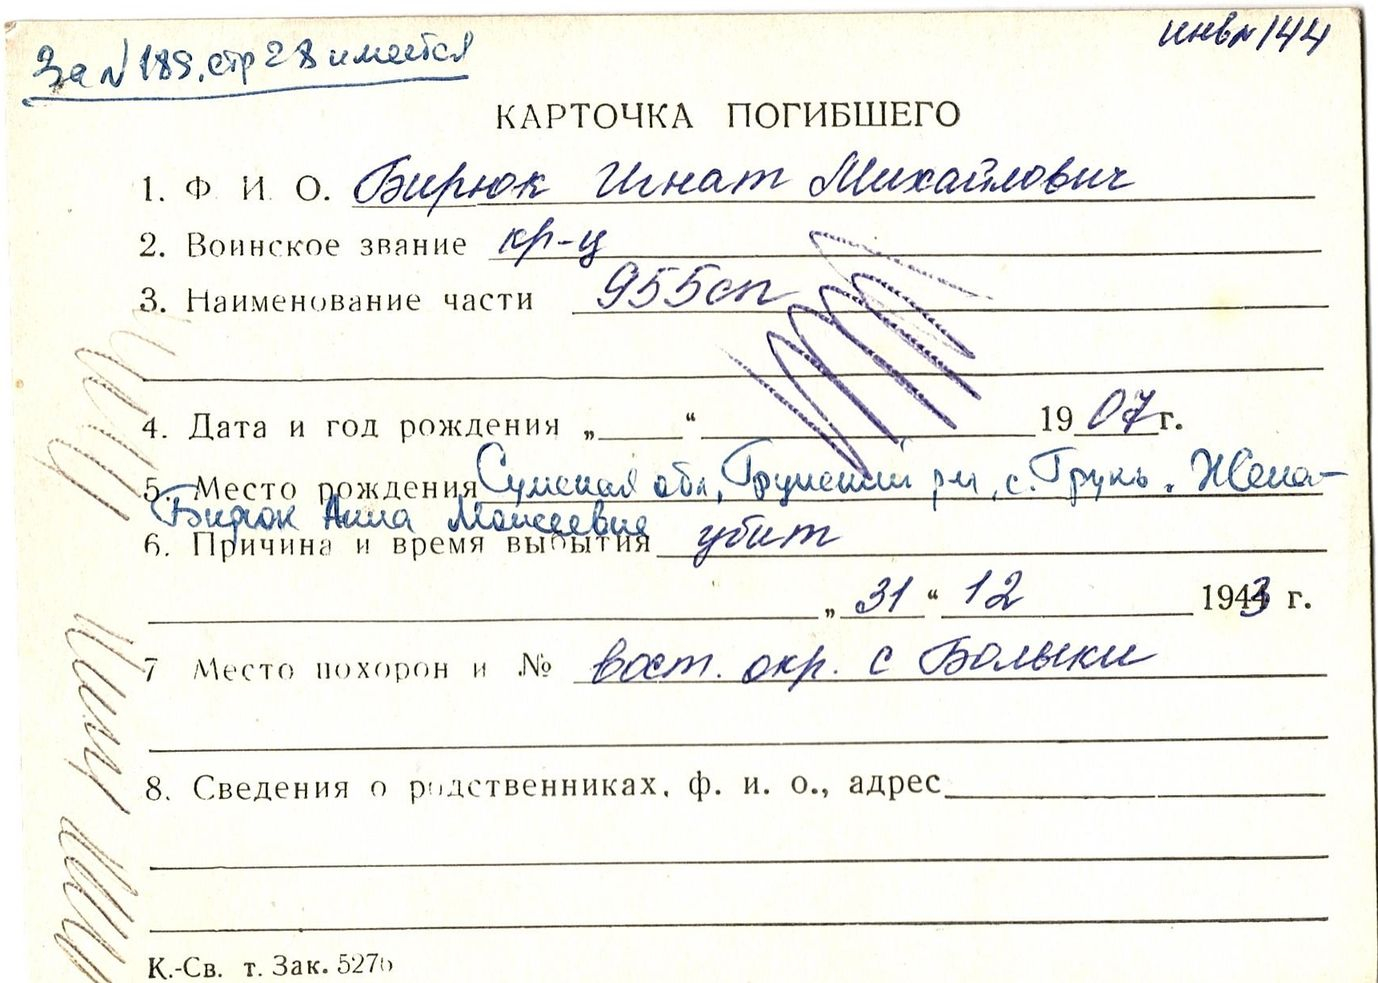 За №189, стр 28 имеется
инв№144
КАРТОЧКА ПОГИБШЕГО
1. Ф. И. О. Бирюк Игнат Михайлович
2. Воинское звание кр-ц
3. Наименование части 955сп
4. Дата и год рождения „ “ 1907г.
5. Место рождения Сумская обл, Грунский р-н, с. Грунь. Жена-
Бирюк Анна Моисеевна
6. Причина и время выбытия убит
„31“ 12 1943 г.
7 Место похорон и № вост. окр. с Болыки
8. Сведения о родственниках, ф. и. о., адрес
К.-Св. т. Зак. 5276